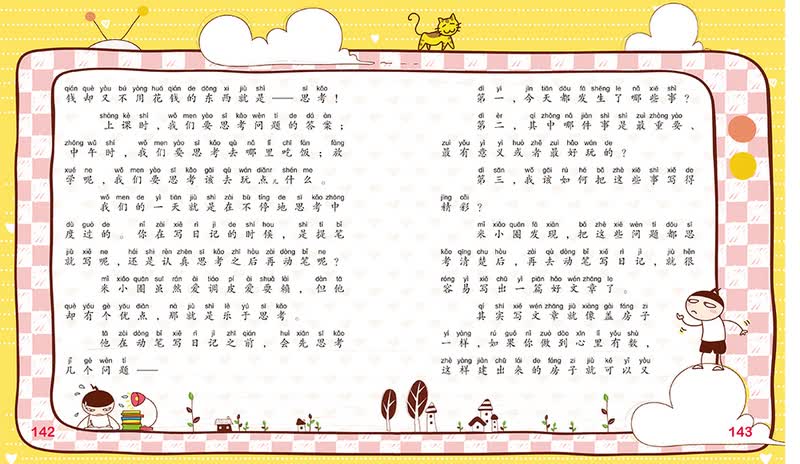 qián què yòu bú yòng huā qián de dōng xi jiù shì sī kǎo
钱却又不用花钱的东西就是——思考！
shàng kè shí wǒ men yào sī kǎo wèn tí de dá àn
上课时，我们要思考问题的答案；
zhōng wǔ shí wǒ men yào sī kǎo qù nǎ lǐ chī fàn fàng
中午时，我们要思考去哪里吃饭；放
xué ne wǒ men yào sī kǎo gāi qù wán diǎnr shén me
学呢，我们要思考该去玩点儿什么。
wǒ men de yì tiān jiù shì zài bù tíng de sī kǎo zhōng
我们的一天就是在不停地思考中
dù guò de nǐ zài xiě rì jì de shí hou shì tí bǐ
度过的。你在写日记的时候，是提笔
jiù xiě ne hái shi rèn zhēn sī kǎo zhī hòu zài dòng bǐ ne
就写呢，还是认真思考之后再动笔呢？
mǐ xiǎo quān suī rán ài tiáo pí ài shuǎ lài dàn tā
米小圈虽然爱调皮爱耍赖，但他
què yǒu gè yōu diǎn nà jiù shì lè yú sī kǎo
却有个优点，那就是乐于思考。
tā zài dòng bǐ xiě rì jì zhī qián huì xiān sī kǎo
他在动笔写日记之前，会先思考
jǐ gè wèn tí
几个问题——
142
dì yī jīn tiān dōu fā shēng le nǎ xiē shì
第一，今天都发生了哪些事？
dì èr qí zhōng nǎ jiàn shì shì zuì zhòng yào
第二，其中哪件事是最重要、
zuì yǒu yì yì huò zhě zuì hǎo wán de
最有意义或者最好玩的？
dì sān wǒ gāi rú hé bǎ zhè xiē shì xiě de
第三，我该如何把这些事写得
jīng cǎi
精彩？
mǐ xiǎo quān fā xiàn bǎ zhè xiē wèn tí dōu sī
米小圈发现，把这些问题都思
kǎo qīng chu hòu zài qù dòng bǐ xiě rì jì jiù hěn
考清楚后，再去动笔写日记，就很
róng yì xiě chū yì piān hǎo wén zhāng le
容易写出一篇好文章了。
qí shí xiě wén zhāng jiù xiàng gài fáng zi
其实写文章就像盖房子
yí yàng rú guǒ nǐ zuò dào xīn lǐ yǒu shù
一样，如果你做到心里有数，
zhè yàng jiàn chū lái de fáng zi jiù kě yǐ yòu
这样建出来的房子就可以又
143